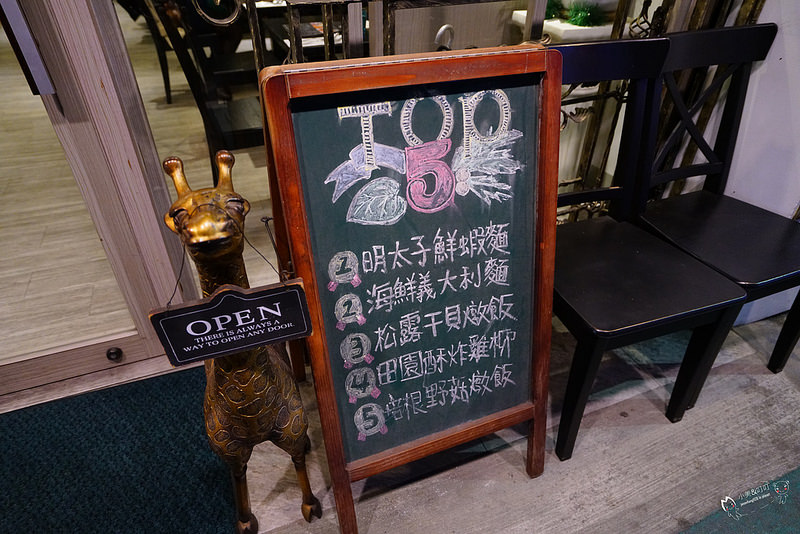 TOP
5
1 明太子鮮蝦麵
2 海鮮義大利麵
3 松露干貝燉飯
4 田園酥炸雞柳
5 培根野菇燉飯
OPEN
THERE IS ALWAYS A
WAY TO OPEN ANY DOOR.